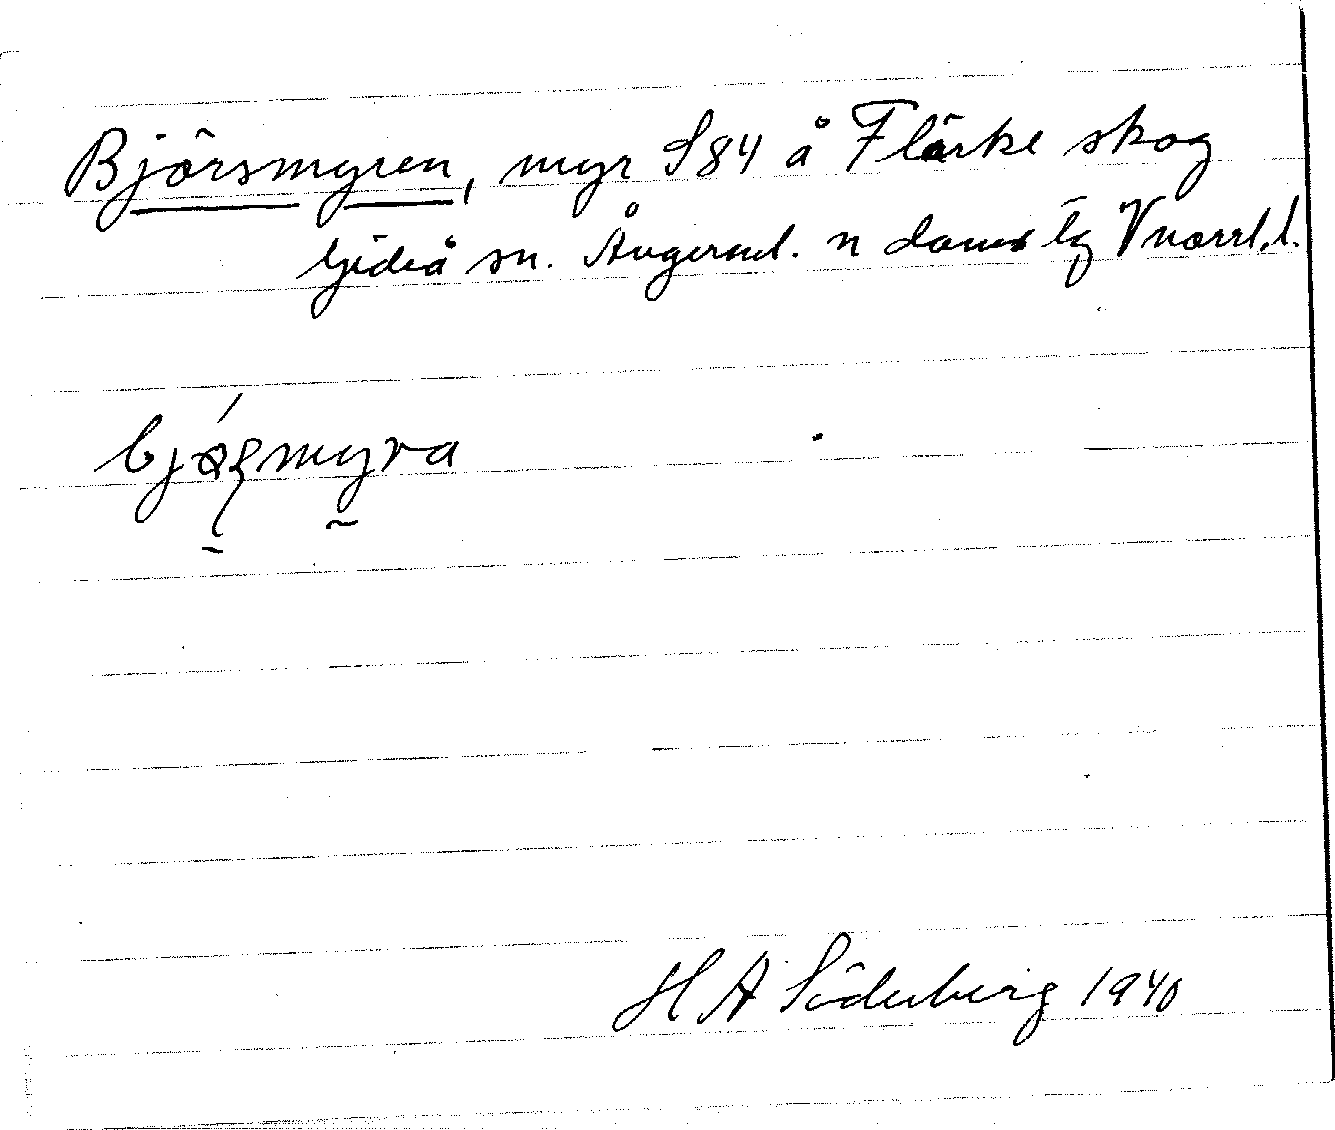 Björsmyren, myr S84 å Flärke skog
Gideå sn. Ångerml. n doms lg Vnorrl.l.
bjøʂmyra
H A Söderberg 1940